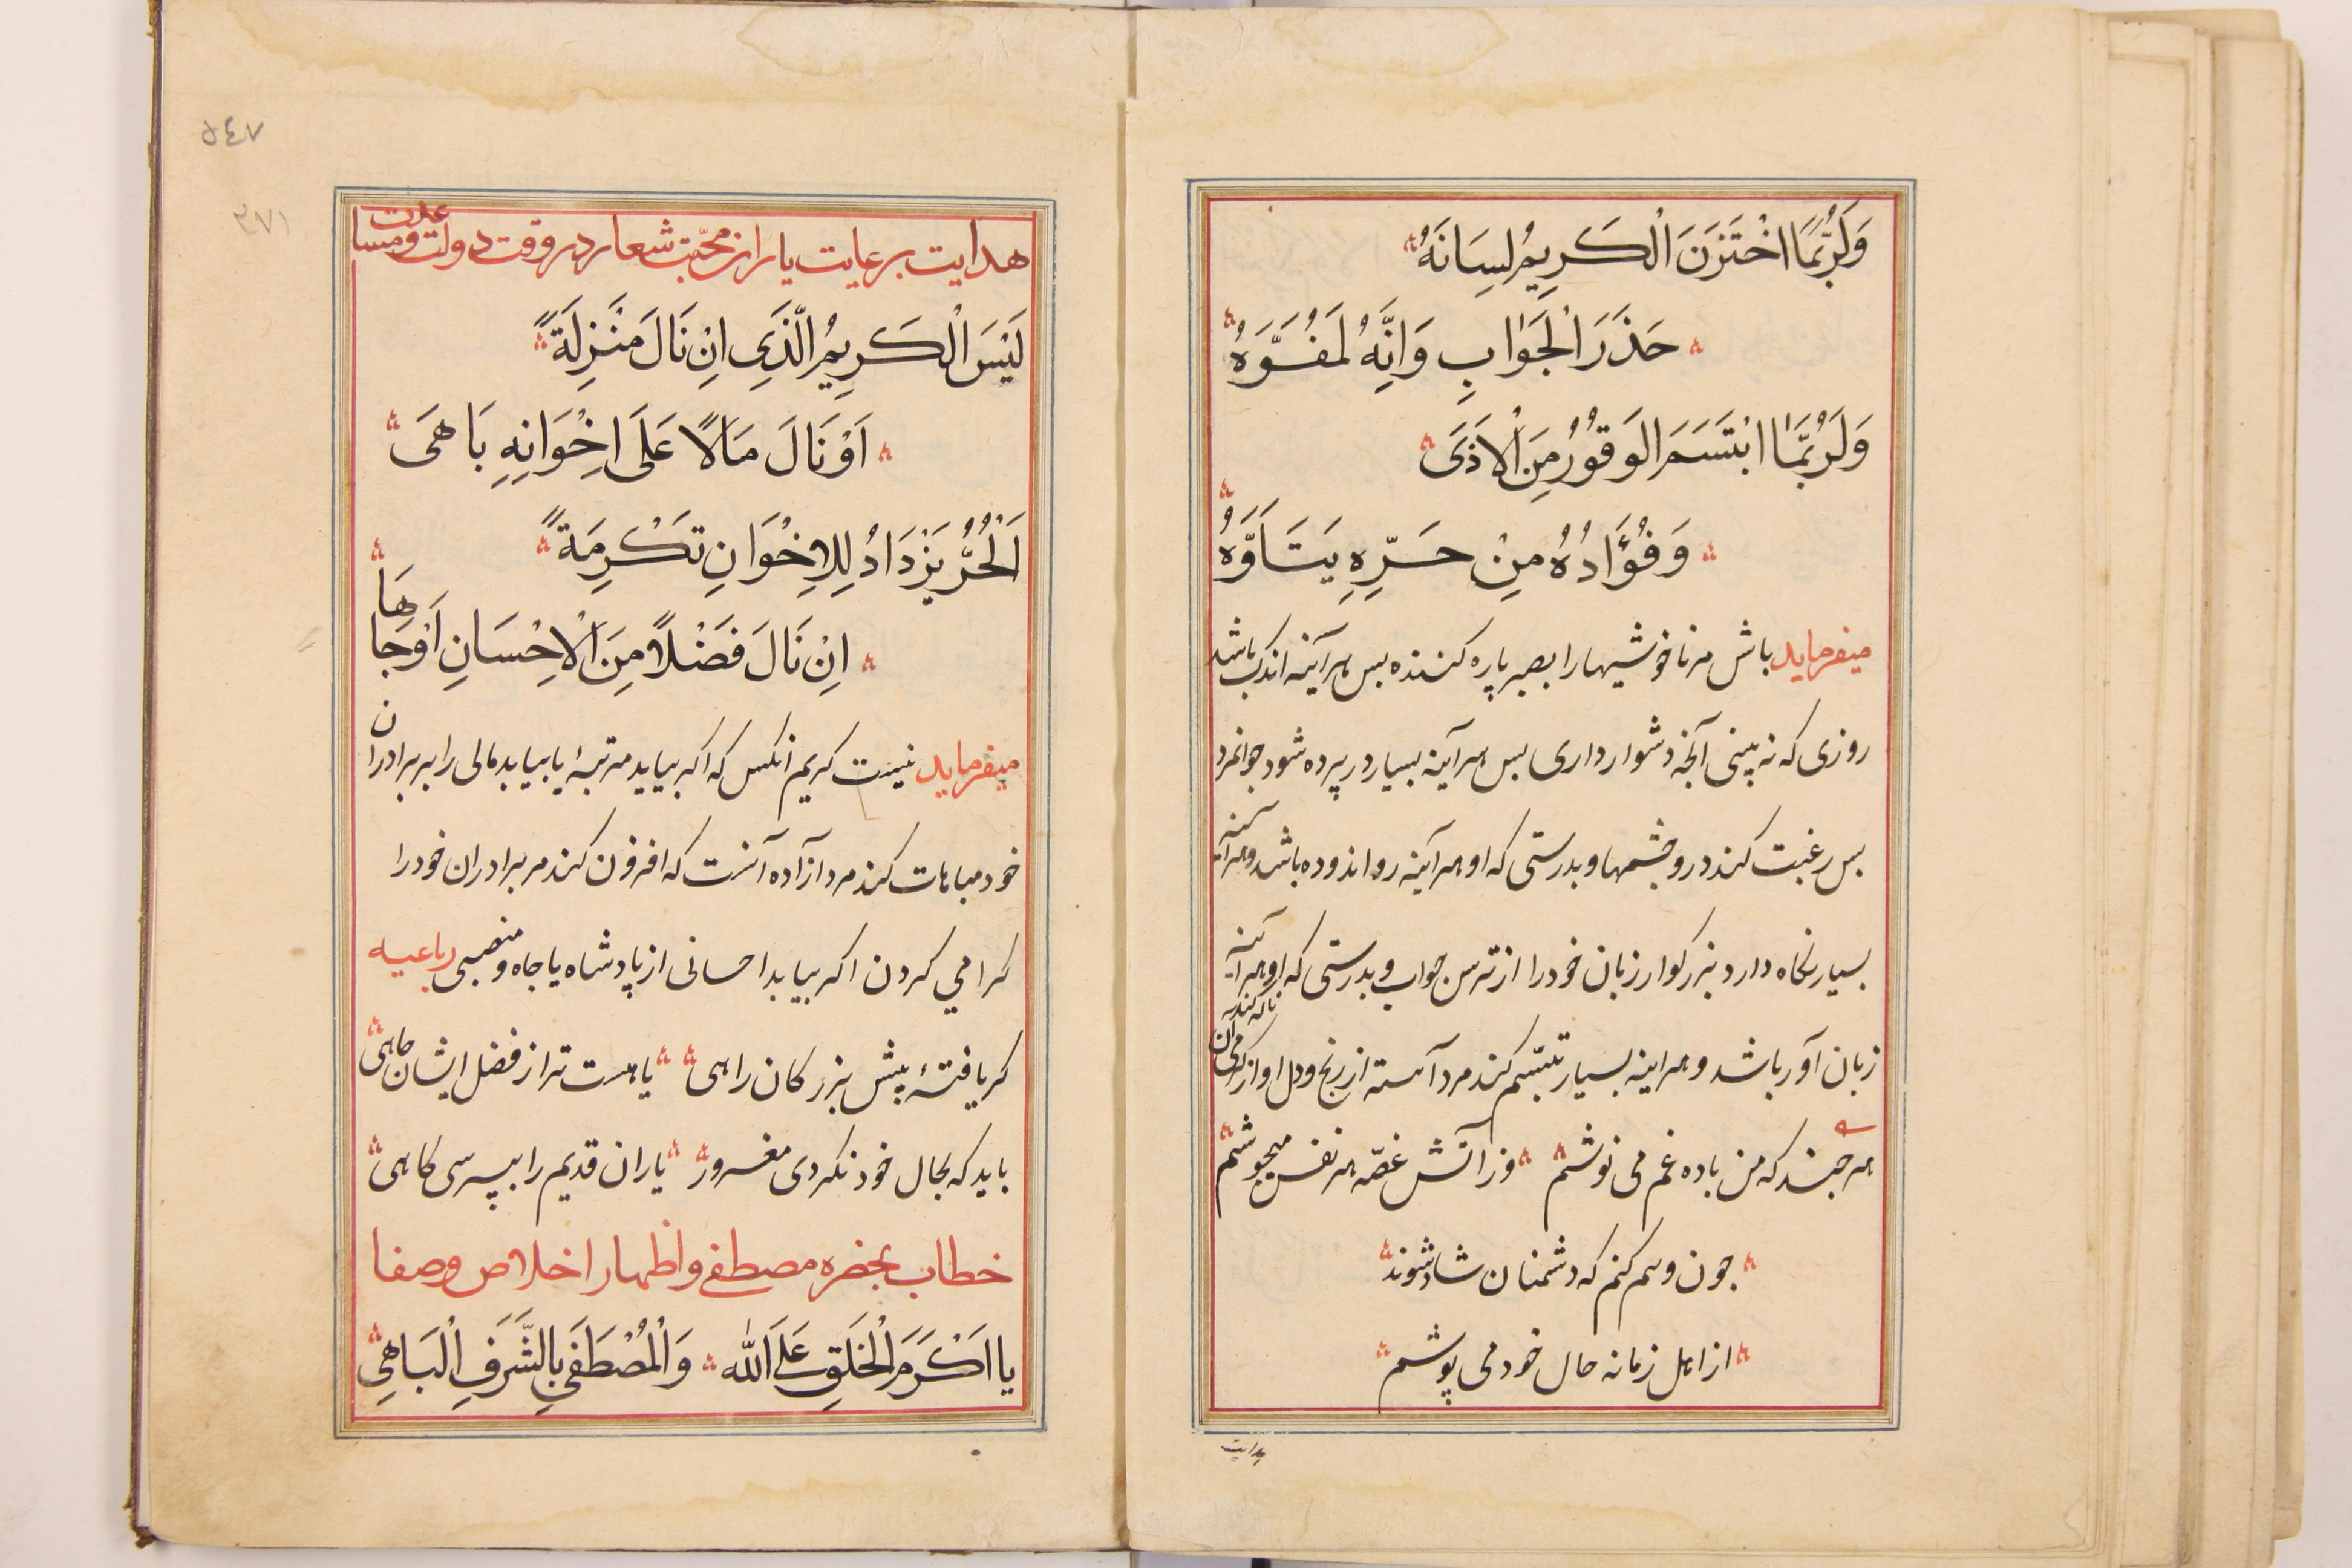 وَلَرُبَّمَا اخْتَزَنَ الْكَرِيمُ لِسَانَهُ
حَذَرَ الْجَوَابِ وَانَّهُ لَمُفَوَّهُ
وَلَرُبَّمَا ابْتَسَمَ الوَقُورُ مِنَ الْاَذَى
وَفُؤَادُهُ مِنْ حَرِّهِ يَتَاَوَّهُ
ميفرمايد باش مر ناخوشيهارا بصبر پاره كننده بس هرآينه اندك باشد
روزى كه نه بينى آنچه دشوار دارى بس هرآينه بسيار در پرده شود جوانمرد
بس رغبت كند درو چشمها و بدرستى كه او هرآينه رو اندوده باشد و هرآينه
بسيار نكاه دارد بزركوار زبان خودرا از ترس جواب و بدرستى كه او هرآينه
زبان آور باشد و هراينه بسيار تبسّم كند مرد آهسته از رنج و دل او از كرمى آن ناله كند
هر چند كه من باده غم مى نوشم وز آتش غصّه هر نفس ميجوشم
چون وهم كنم كه دشمنان شاد شوند
از اهل زمانه حال خود مى پوشم
هدايت
٥٤٧
٣٧١
هدايت برعايت ياران محبّت شعار در وقت دولت ومساعدت
لَيْسَ الْكَرِيمُ الَّذِي اِنْ نَالَ مَنْزِلَةً
اَوْ نَالَ مَالًا عَلَى اِخْوَانِهِ بَاهَى
اَلْحُرُّ يَزْدَادُ لِلِاخْوَانِ تَكْرِمَةً
اِنْ نَالَ فَضْلًا مِنَ الْاِحْسَانِ اَوْجَاهَا
ميفرمايد نيست كريم انكس كه اكر بيابد مرتبۀ يا بيابد مالى را بر برادران
خود مباهات كند مرد آزاده آنست كه افزون كند مر برادران خودرا
كرامي كردن اكر بيابد احسانى از پادشاه يا جاه و منصبى رباعيه
كر يافتۀ پيش بزركان راهى يا هست ترا از فضل ايشان جاهى
بايد كه بحال خود نكردى مغرور ياران قديم را بپرسى كاهى
خطاب بحضره مصطفى واظهار اخلاص وصفا
يا اَكْرَمَ الْخَلْقِ عَلَى اللّٰه وَالْمُصْطَفَى بِالشَّرَفِ الْبَاهِي